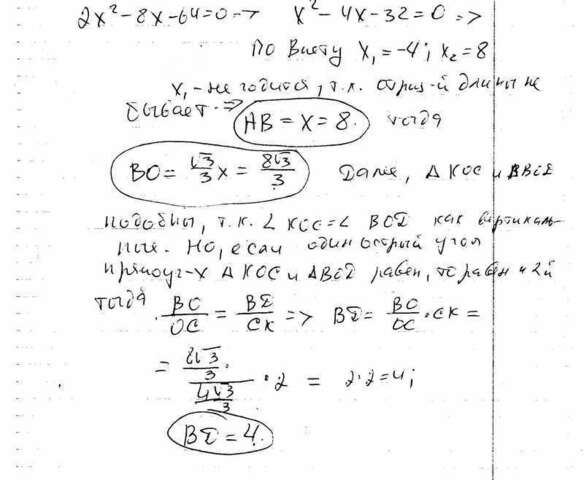 2x² - 8x - 64 = 0 => x² - 4x - 32 = 0 =>
По Виету x₁ = -4; x₂ = 8
x₁ - не годится, т.к. отриц-й длины не
бывает. => AB = x = 8. тогда
BO = √3/3 x = 8√3/3 Далее, Δ KOC и ΔBOE
подобны, т.к. ∠ KOC = ∠ BOE как вертикаль-
ные. Но, если один острый угол
прямоуг-х Δ KOC и ΔBOE равен, то равен и 2й
тогда BO/OC = BE/CK => BE = BO/OC · CK =
= (8√3/3)/(4√3/3) · 2 = 2·2=4;
BE = 4.